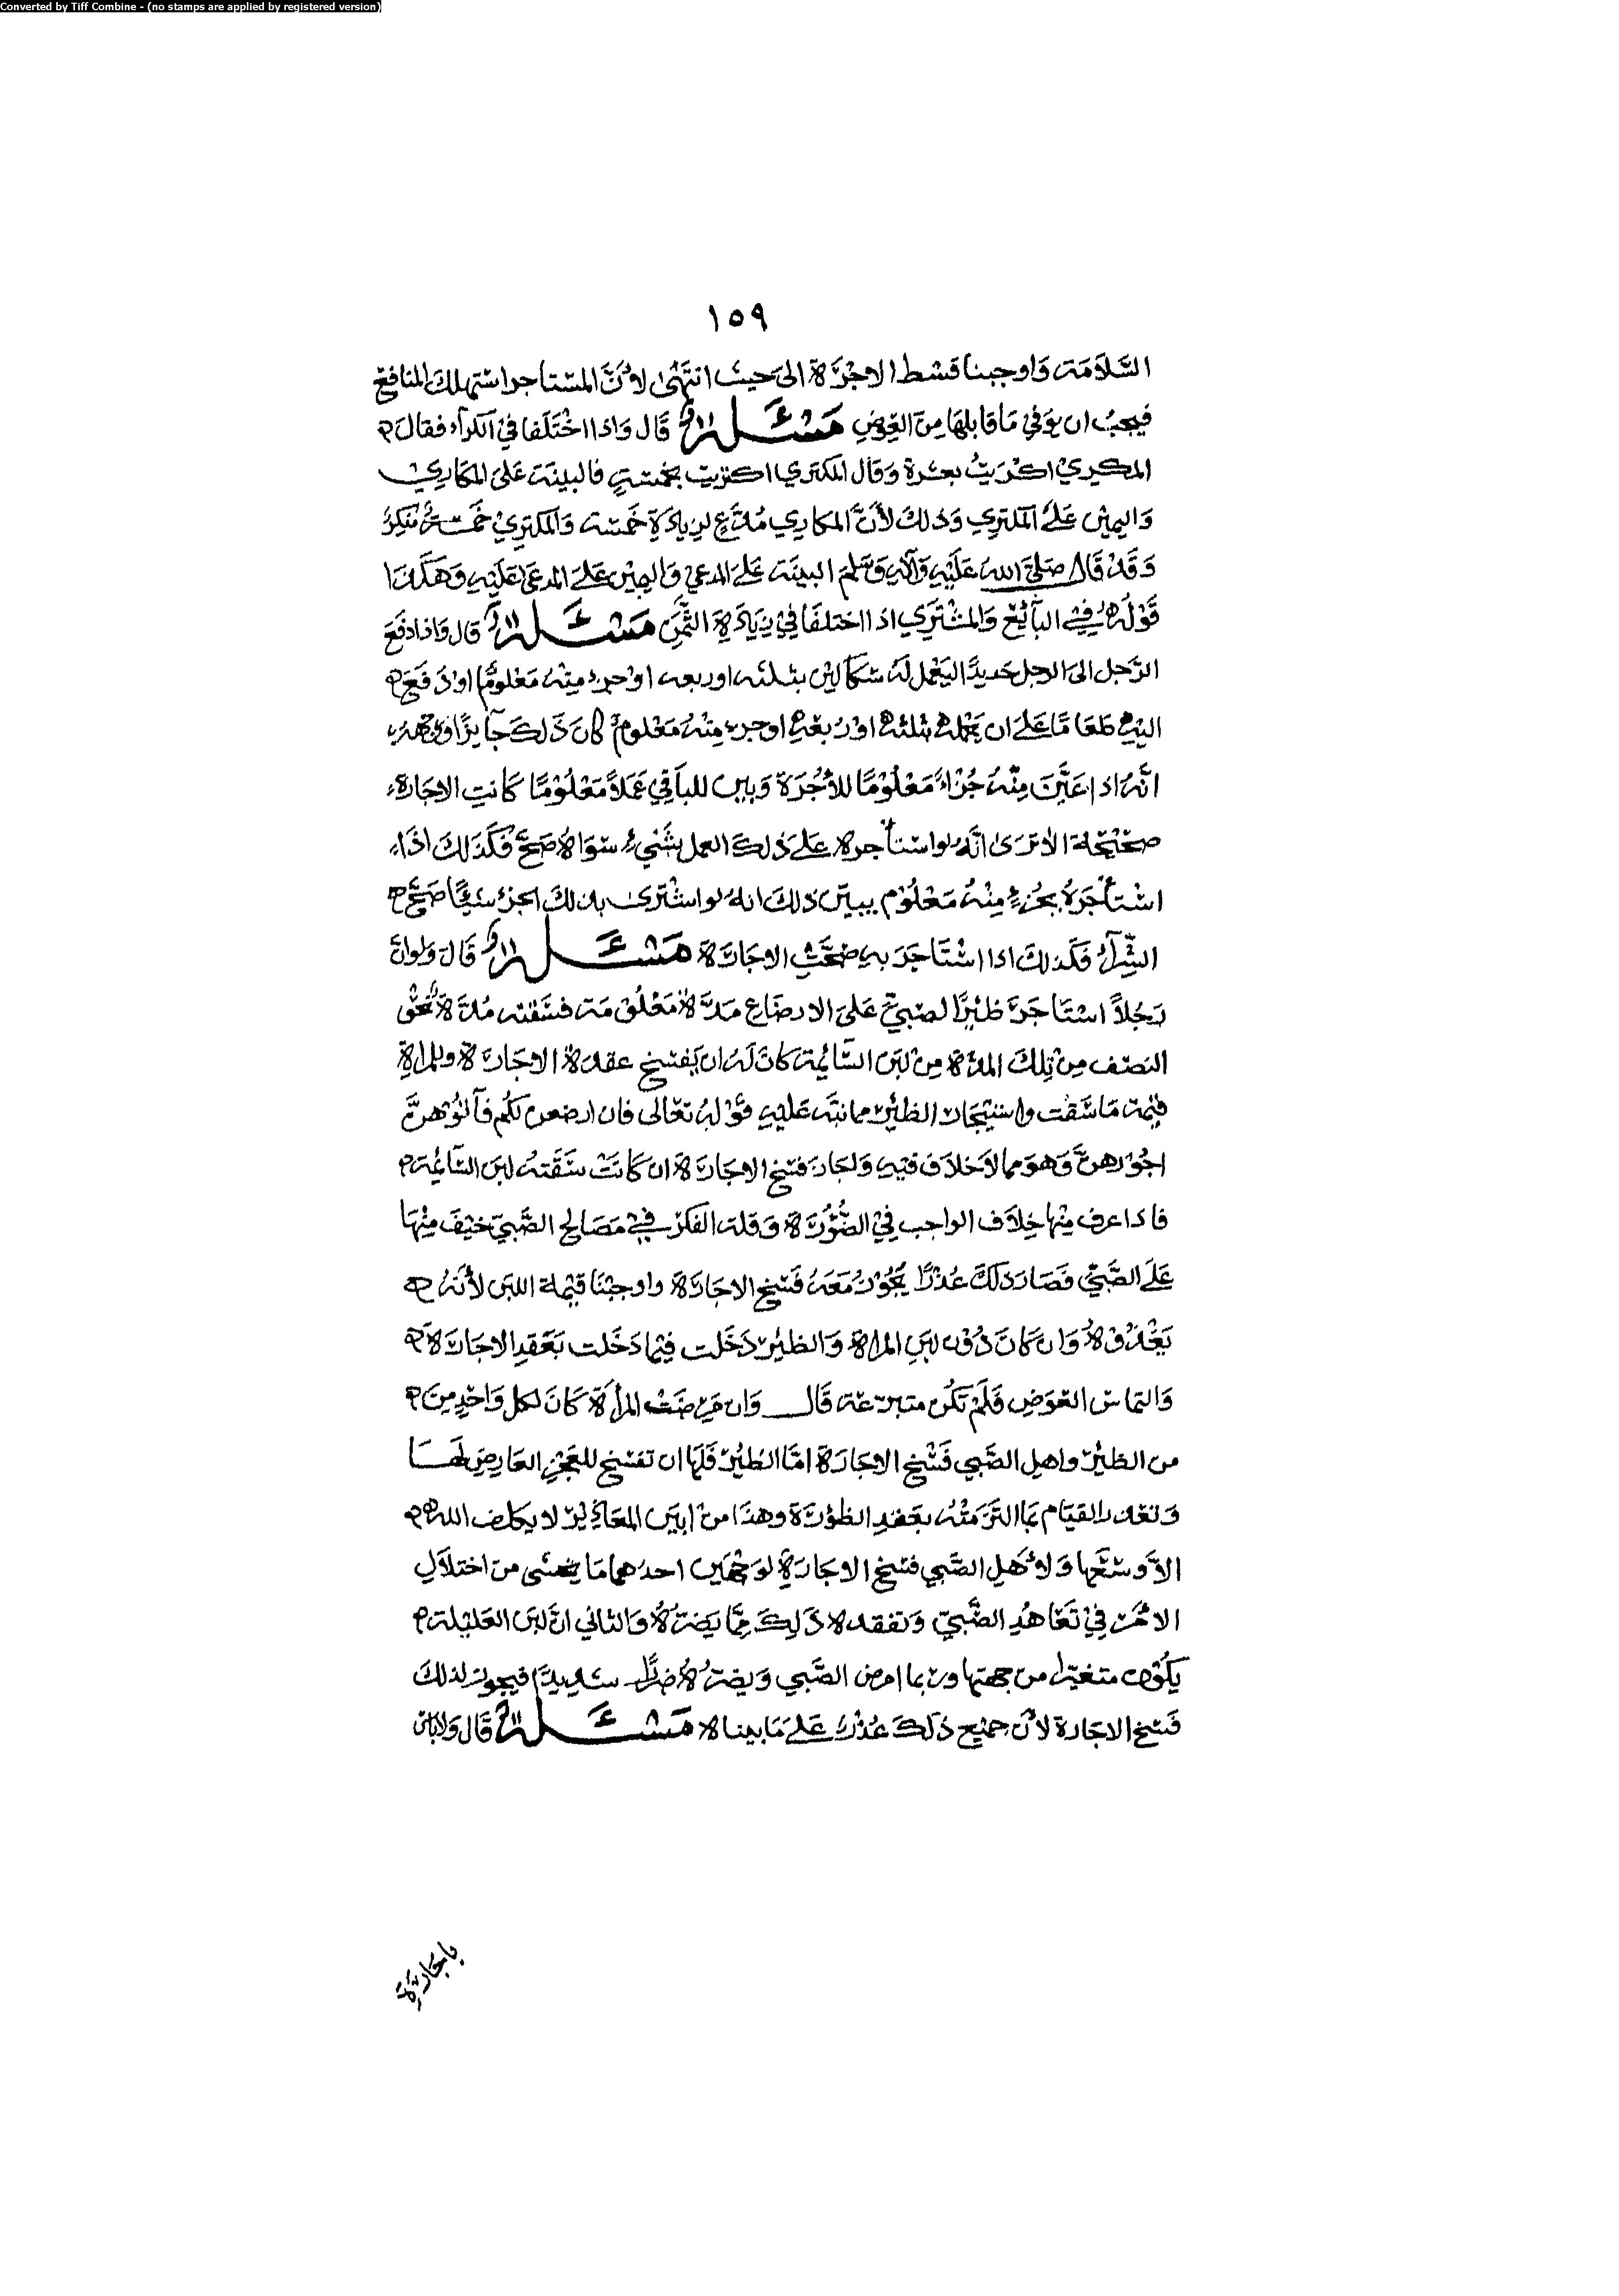 Converted by Tiff Combine - (no stamps are applied by registered version)
١٥٩
السَّلَامَة وَاوجبنا قسْط الاجْرَة الى حَيث انتَهٰى لأنَّ المسْتاجر اسْتهلك المنافع
فيجبُ ان يوَفي مَا قابلهَا مِنَ العِوَضِ مَسْئَلة قَال وَاذا اخْتَلَفا في الكرآء فقال
المكرِيْ اكْرَيتُ بعشرة وَقال المكتري اكتريت بخمسَةٍ فالبينَة عَلى المكاريْ
وَاليميْن عَلَى المكترِي وَذلك لأنَّ المكاري مُدَّعٍ لزيادَةِ خَمسَة وَالمكترِيْ خمسَة مُنكِرٌ
وَقَدْ قَال صَلى الله عَلَيْهِ وَآلهِ وَسَلم البينَة عَلى المدعي وَاليمِيْن عَلى المدعَى عَلَيْهِ وَهَكذا
قَوْلهُ فِيْ البآئِع وَالمشْتَرِي اذا اختلفَا فيْ زِيَادَةِ الثَّمَنِ مَسْئَلة قال وَاذا دَفعَ
الرَّجل الى الرجل حَديدًا ليَعْمل لهُ سَكاكين بثلثه او ربعه او جزء منْهُ مَعْلومًا او دَفَعَ
اليهِ طَعَامًا عَلى ان يحْمله بثلثه اوْ رُبعهِ او جزء مِنْهُ مَعْلوم كانَ ذَلك جآيزًا وَوَجههُ
انَّهُ اذا عَيَّنَ مِنْهُ جُزْءًا مَعْلُوْمًا للأجْرَة وَبين للبَاقِي عَمَلاً مَعْلُوْمًا كَانت الاجَارة
صَحِيْحَة الا ترَى انَّهُ لو اسْتأجره عَلى ذلك العمل بشَيْءٍ سوَاه صَحَّ فكَذلك اذَا
اسْتأجَرَهُ بجُزءٍ مِنْهُ مَعْلُوْم يبين ذَلك انهُ لو اشْتَرى بذلك الجزء شيئًا صَحَّ
الشِّرآء فكَذلكَ اذا اسْتَاجَرَ بهِ صَحَّتِ الاجَارَة مَسْئَلة قَال وَلو انَّ
رَجُلاً اسْتَاجَرَ ظئِرًا لصَبيٍّ عَلى الارضَاع مدَّة مَعْلُوْمَة فسَقته مُدَّة نحْو
النصْف مِن تِلْكَ المدَّة مِنْ لبَنِ السَّائِمَة كانَ لهُ ان يَفسَخ عقدة الاجَارة وَللمراةِ
قِيْمة مَا سَقَت وَاسْتِيْجَار الظئر مما نبَّه عَليهِ قوْلهُ تعَالى فان ارضعن لكُم فآتُوْهُنَّ
اجُوْرهنَّ وَهوَ مما لاَ خلاَفَ فيْهِ وَلجَازَ فسْخ الاجَارَة ان كَانَتْ سَقَتهُ لبَنَ السَّائِمَة
فاذا عرف مِنْها خِلاَف الواجب فِيْ الضُّؤُرَة وَقلة الفكر فِيْ مَصَالح الصَّبيّ خيْفَ مِنْهَا
عَلَى الصَّبيّ فصَارَ ذلكَ عُذْرًا يَجُوْز مَعَهُ فَسْخ الاجَارَة وَاوجبْنَا قِيْمة اللبَن لأنَّهُ
يَغْذُوْهُ وَان كَانَ دُوْن لبَنِ المراة وَالظئِر دَخَلت فِيْمَا دَخَلت بعَقدِ الاجَارَة
وَالتمَاس العِوَضِ فَلَمْ تَكُن متبرّعَة قَال وَان مَرِضَتْ المرأة كَانَ لكل وَاحِدٍ مِنَ
من الظئر وَاهلِ الصَّبي فَسْخ الاجَارَة امَّا الظئر فَلَها ان تفسَخ للعَجْزِ العَارِضِ لَهَا
وَتعذر القِيَام بمَا التَزمَتْهُ بعَقدِ الظؤرَة وَهذا من ابيَن المعَاذِير لا يكلف الله
الاَّ وسْعَها وَلأهلِ الصَّبي فسْخ الاجَارَة لوَجْهَيْن احدهما مَا يخشى من اختلاَلِ
الامْر فِيْ تَعَاهُدِ الصَّبيّ وَتفقده وَذلِكَ مِمَّا يَضرّهُ وَالثاني انَّ لبَنَ العَليْلة
يَكُوْن متغيّرا من جهتها وَربما امرض الصَّبي وَيضرّهُ ضررًا شديدًا فيجوز لذلك
فَسْخ الاجَارة لأن جميْع ذلكَ عُذْر عَلى مَا بينا مَسْئَلة قَال وَلا بَاس
باجَارَة